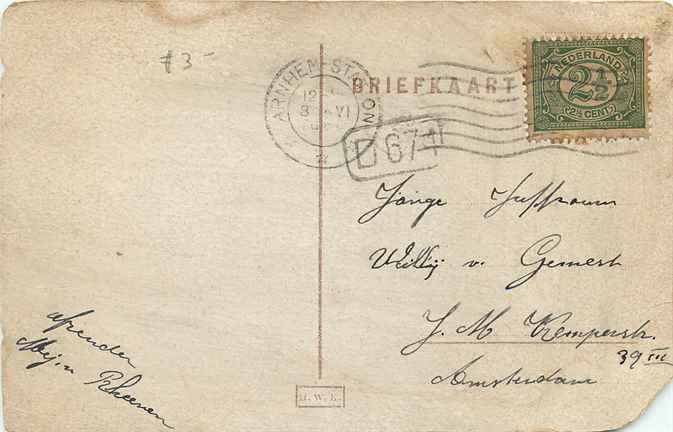 f3-
ARNHEM-STATION
12
3 VI
BRIEFKAART
NEDERLAND
2½
2½ CENT
D671
Jonge Juffrouw
Willij v. Gemert
J. M. Kemperstr.
39 III
Amsterdam
afzender
Mej. v Rheenen
H. W. E.